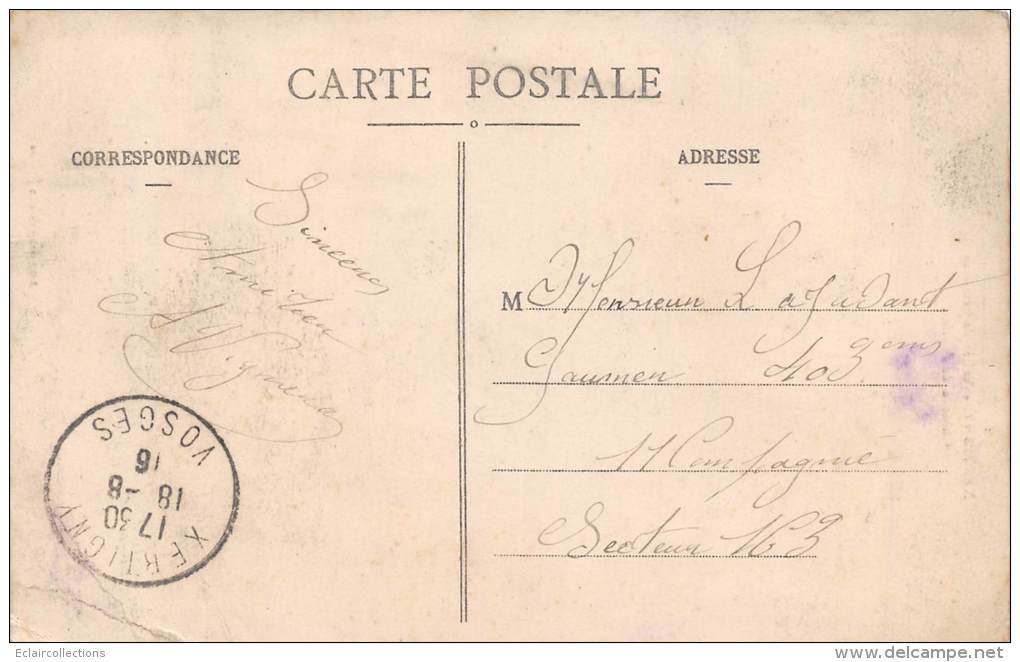 CARTE POSTALE
CORRESPONDANCE
ADRESSE
Sincères
Amitiés
M Monsieur Lajudant
403 eme
11 Compagnie
Secteur 163
XERTIGNY
17 30
18 -8
16
VOSGES
Eclaircollections
www.delcampe.net